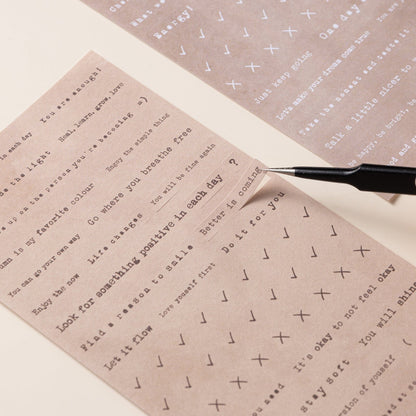 Energy!
One day
Just keep going
Let's make your dream come true
Take the nearest and
Talk a little nicer to
You are enough!
Heal, learn, grow, love
in each day
=)
Enjoy the simple thing
the light
up on the person you're becoming
Go where you breathe free
You will be fine again
is my favorite colour
?
Life changes
You can go your own way
Look for something positive in each day
Better is coming
Enjoy the now
Find a reason to smile
Do it for you
Love yourself first
Let it flow
It's okay to not feel okay
You will
need
Stay soft
of yourself